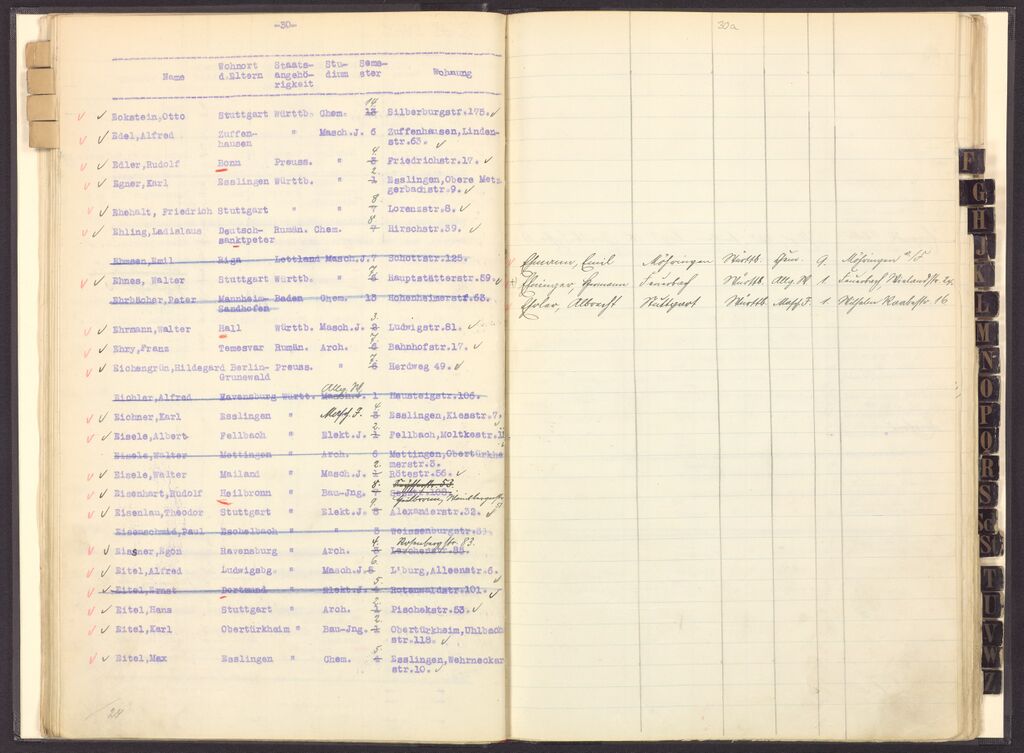 -30-
Name Wohnort d.Eltern Staats-angehö-rigkeit Stu-dium Seme-ster Wohnung
Eckstein,Otto Stuttgart Württb. Chem. 14 13 Silberburgstr.175.
Edel,Alfred Zuffen- " Masch.J. 6 Zuffenhausen,Linden-
hausen str.63.
Edler,Rudolf Bonn Preuss. " 4. 3 Friedrichstr.17.
Egner,Karl Esslingen Württb. " 2. 1 Esslingen,Obere Metz
gerbachstr.9.
Ehehalt, Friedrich Stuttgart " " 8 7 Lorenzstr.8.
Ehling,Ladislaus Deutsch- Rumän. Chem. 8. 7 Hirschstr.39.
sanktpeter
Ehmsen,Emil Riga Lettland Masch.J.7 Schottstr.125.
Ehnes, Walter Stuttgart Württb. " 7. 6 Hauptstätterstr.59.
Ehrbächer,Peter Mannheim- Baden Chem. 13 Hohenheimerstr.63.
Sandhofen
Ehrmann,Walter Hall Württb. Masch.J. 3. 2 Ludwigstr.81.
Ehry,Franz Temesvar Rumän. Arch. 7. 6 Bahnhofstr.17.
Eichengrün,Hildegard Berlin- Preuss. " 7. 6 Herdweg 49.
Grunewald
Eichler,Alfred Ravensburg Württ. Allg. W. Masch.J. 1 Hausteigstr.106.
Eichner,Karl Esslingen " Masch.J. 4. 3 Esslingen,Kiesstr.7.
Eisele,Albert Fellbach " Elekt.J. 2. 1 Fellbach,Moltkestr.1
Eisele,Walter Mettingen " Arch. 6 Mettingen,Obertürkhe
merstr.3.
Eisele,Walter Mailand " Masch.J. 2. 1 Rötestr.56.
Eisenhart,Rudolf Heilbronn " Bau-Jng. 8. 7
Eisenlau,Theodor Stuttgart " Elekt.J. 9. 8 Alexanderstr.32.
Eisenschmid,Paul Eschelbach " " 3 Weissenburgstr.39.
Eissner,Egon Ravensburg " Arch. 4. 3 Rosenbergstr. 83.
Eitel,Alfred Ludwigsbg. " Masch.J. 6. 5 L'burg,Alleenstr.6.
Eitel,Ernst Dortmund " Elekt.J. 5. 4 Rotenwaldstr.101.
Eitel,Hans Stuttgart " Arch. 2. 1 Pischekstr.53.
Eitel,Karl Obertürkheim " Bau-Jng. 2. 1 Obertürkheim,Uhlbach
str.118.
Eitel,Max Esslingen " Chem. 5. 4 Esslingen,Wehrneckar
str.10.
24
30a
Ehmann, Emil Möhringen Württb. Chem. 9. Möhringen a/F
Ehninger, Hermann Feuerbach Württb. Allg. W. 1 Feuerbach, Wielandstr. 24.
Albrecht Stuttgart Württb. Masch.J. 1 Wilhelm Raabestr. 16
F
G
H
J
K
L
M
N
O
P
Q
R
S
Sch
St
T
U
V
W
Z